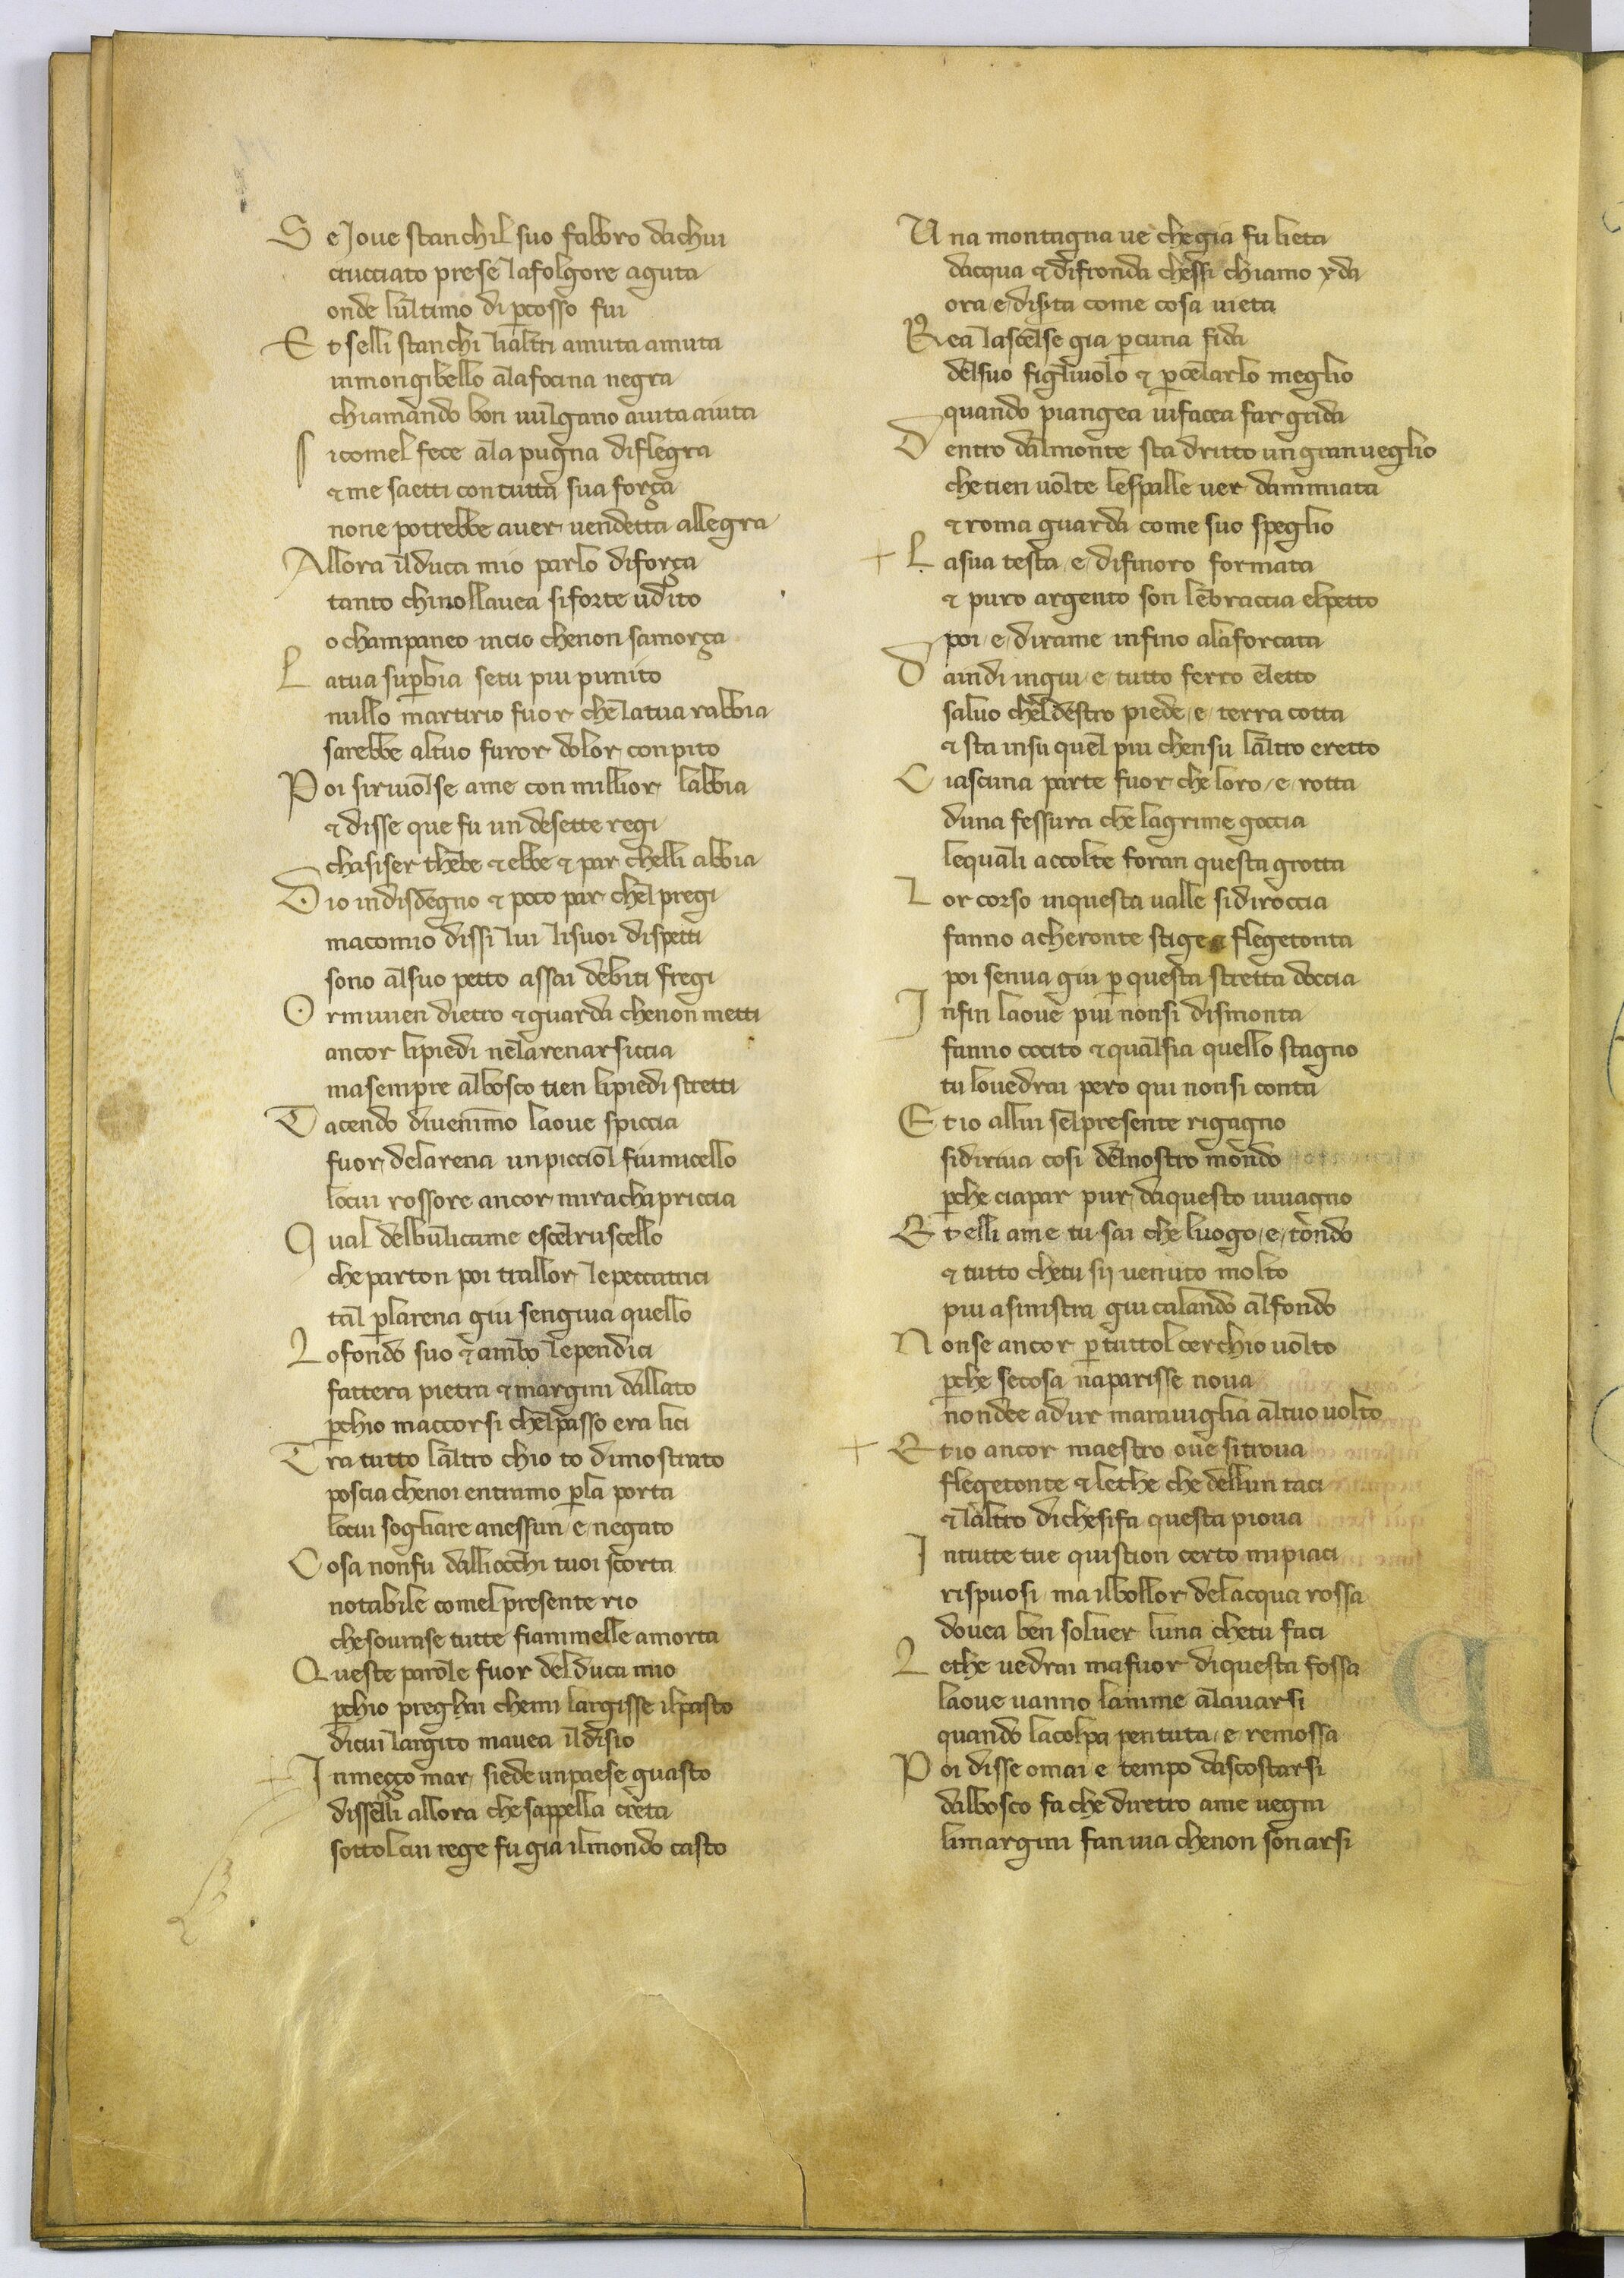 S e Joue stanchil suo fabbro dachui
crucciato prese lafolgore aguta
onde lultimo di pcosso fui
E t selli stanchi lialtri amuta amuta
inmongibello alafocina negra
chiamando bon uulgano aiuta aiuta
S icomel fece ala pugna diflegra
⁊ me saetti con tutta sua força
none potrebbe auer uendetta allegra
Allora ilduca mio parlo diforça
tanto chinollauea siforte udito
o champaneo incio chenon samorça
L atua supbia setu piu punito
nullo martirio fuor che latua rabbia
sarebbe altuo furor dolor conpito
P oi siriuolse ame con millior labbia
⁊ disse que fu un desette regi
chasiser thebe ⁊ ebbe ⁊ par chelli abbia
D io indisdegno ⁊ poco par chel pregi
macomio dissi lui lisuoi dispetti
sono alsuo petto assai debiti fregi
O rmiuien dietro ⁊ guarda chenon metti
ancor lipiedi nelarenarsiccia
masempre albosco tien lipiedi stretti
T acendo diuenimmo laoue spiccia
fuor delarena un picciol fiumicello
locui rossore ancor mirachapriccia
Q ual delbulicame escelruscello
che parton poi trallor lepeccatrici
tal plarena giu sengiua quello
L ofondo suo ⁊ ambo lependici
fattera pietra ⁊ margini dallato
pchio maccorsi chelpasso era lici
T ra tutto laltro chio to dimostrato
poscia chenoi entrammo pla porta
locui sogliare anessun e negato
C osa nonfu dalliocchi tuoi scorta
notabile comel presente rio
chesourase tutte fiammelle amorta
Q ueste parole fuor del duca mio
pchio preghai chemi largisse ilpasto
dicui largito mauea il disio
I nmeçço mar siede unpaese guasto
disselli allora chesappella creta
sottol cui rege fu gia ilmondo casto
U na montagna ue chegia fu lieta
dacqua ⁊ difronda chessi chiamo yda
ora e disita come cosa uieta
R ea lascelse gia pcuna fida
delsuo figliuolo ⁊ pcelarlo meglio
quando piangea uifacea far grida
D entro dalmonte sta dritto un granueglio
chetien uolte lespalle uer dammiata
⁊ roma guarda come suo speglio
L asua testa e difinoro formata
⁊ puro argento son lebraccia elpetto
poi e dirame infino alaforcata
D aindi ingiu e tutto ferro eletto
saluo cheldestro piede e terra cotta
⁊ sta insu quel piu chensu laltro eretto
C iascuna parte fuor che loro e rotta
duna fessura che lagrime goccia
lequali accolte foran questa grotta
L or corso inquesta ualle sidiroccia
fanno acheronte stige ⁊ flegetonta
poi senua giu p questa stretta doccia
I nfin laoue piu nonsi dismonta
fanno cocito ⁊ qualsia quello stagno
tu louedrai pero qui nonsi conta
E t io allui selpresente rigagno
sidiriua cosi delnostro mondo
pche ciapar pur daquesto uiuagno
E t elli ame tu sai che luogo e tondo
⁊ tutto chetu sij uenuto molto
piu asinistra giu calando alfondo
N onse ancor ptuttol cerchio uolto
pche secosa naparisse noua
nondee adur marauiglia altuo uolto
E t io ancor maestro oue sitroua
flegetonte ⁊ lethe che dellun taci
⁊ laltro dichesifa questa pioua
I ntutte tue quistion certo mipiaci
rispuosi ma ilbollor delacqua rossa
douea ben soluer luna chetu faci
L ethe uedrai mafuor diquesta fossa
laoue uanno lanime alauarsi
quando lacolpa pentuta e remossa
P oi disse omai e tempo dascostarsi
dalbosco fa che diretro ame uegni
limargini fan uia chenon son arsi